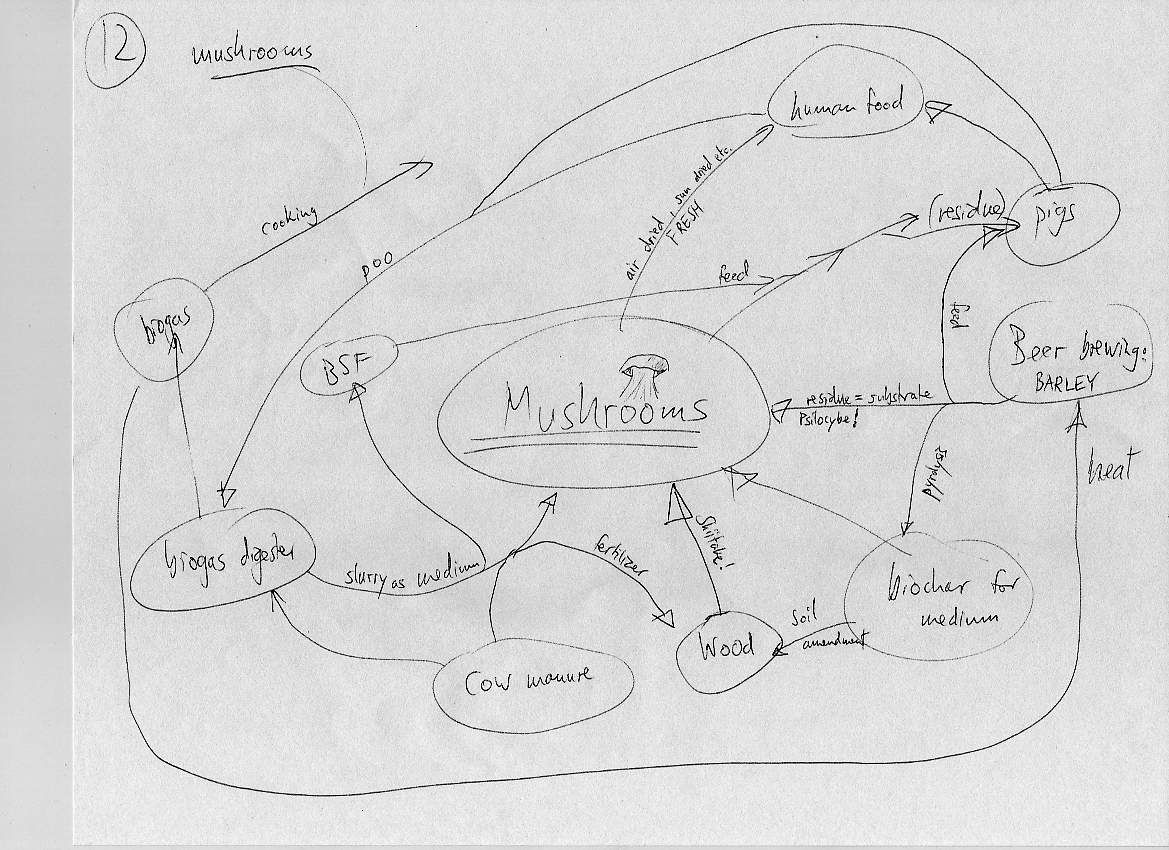 12
mushrooms
human food
cooking
air dried, sun dried etc.
FRESH
poo
(residue)
pigs
feed
biogas
BSF
feed
Beer brewing:
BARLEY
Mushrooms
residue = substrate
Psilocybe!
heat
pyrolysis
biogas digester
slurry as medium
fertilizer
Shiitake!
biochar for
medium
soil
amendment
Wood
Cow manure